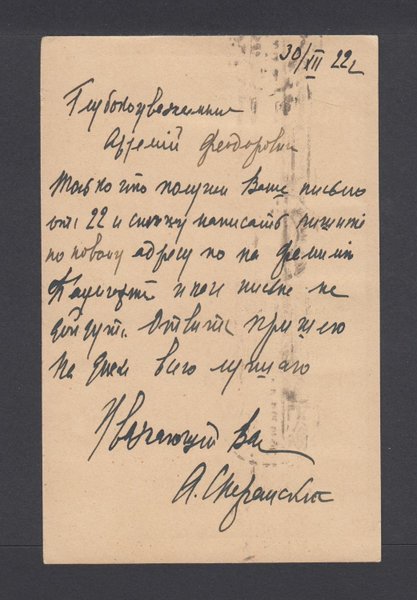 30/XII 22 г.
Глубокоуважаемый
Артемий Феодорович
Только что получил Ваше письмо
от 22 и спешу написать пишите
по новому адресу но на фамилию
иначе письма не
дойдут. Ответ пришлю
на днях всего лучшего
Уважающий Вас
А. Сперанский